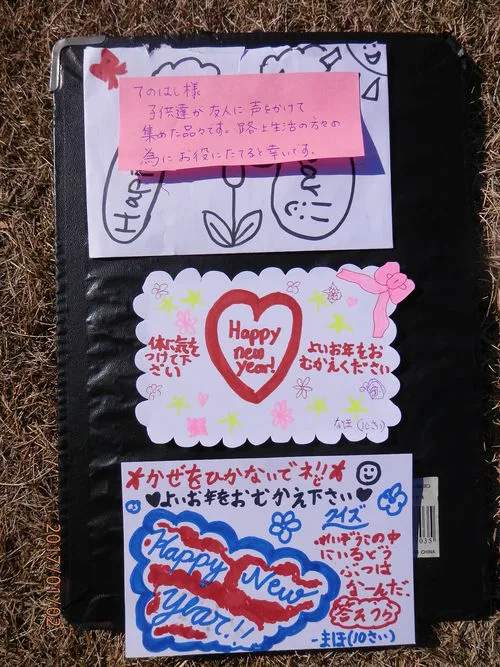 てのはし様
子供達が友人に声をかけて
集めた品々です。路上生活の方々の
為にお役にたてると幸いです。
Happy
ear!!
Happy
new
year!
体に気を
つけて下
さい
よいお年をお
むかえください
なほ(10さい)
かぜをひかないでネ!!
よいお年をおむかえ下さい
Happy
New
Year!!
クイズ
れいぞうこの中
にいるどう
ぶつは
なーんだ、
答えうら
ーまほ(10さい)
CHINA
2017/01/02